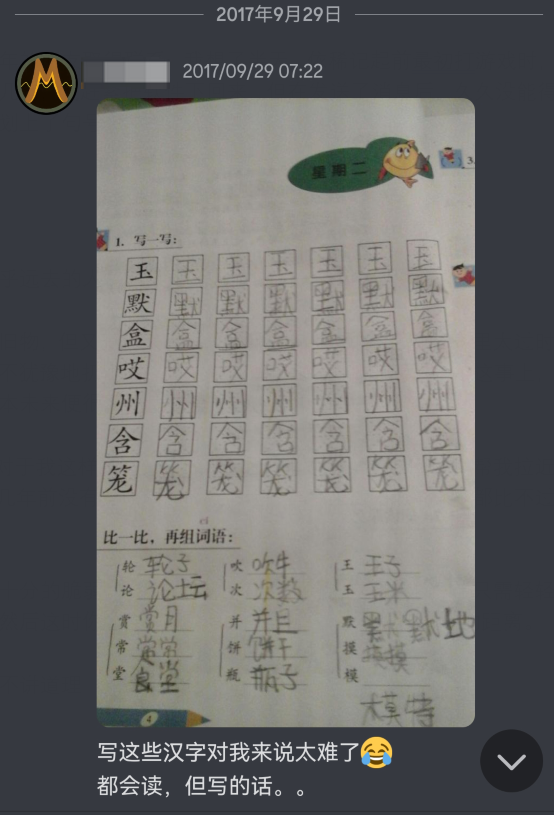 2017年9月29日
2017/09/29 07:22
星期二
3.
1. 写一写：
玉 玉 玉 玉 玉 玉 玉
默 默 默 默 默 默 默
盒 盒 盒 盒 盒 盒 盒
哎 哎 哎 哎 哎 哎 哎
州 州 州 州 州 州 州
含 含 含 含 含 含 含
笼 笼 笼 笼 笼 笼 笼
比一比，再组词语：
轮 轮子 吹 吹牛 王 王子
论 论坛 次 次数 玉 玉米
赏 赏月 并 并且 默 默默地
常 常常 饼 饼干 摸
堂 食堂 瓶 瓶子 模
模特
4
写这些汉字对我来说太难了😂
都会读，但写的话。。